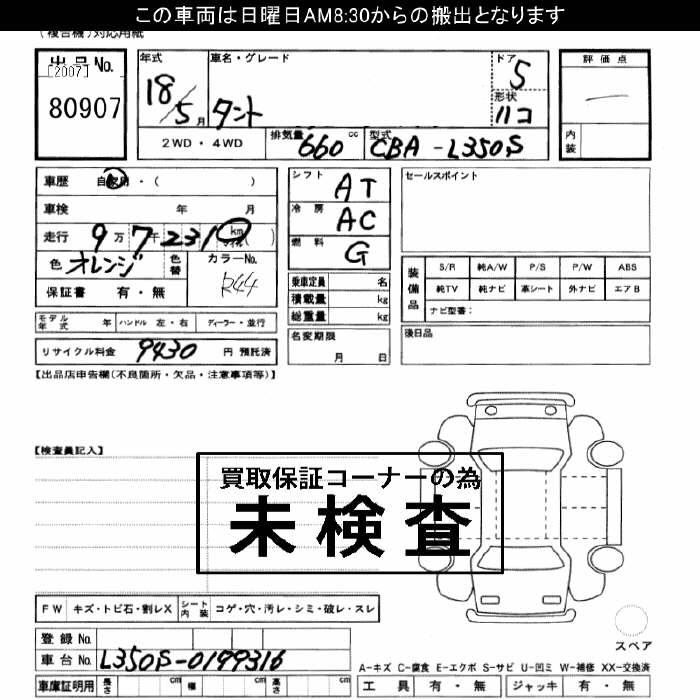 この車両は日曜日AM8:30からの搬出となります
(複合機)対応用紙
出品No.
[2007]
80907
年式
18/5月
車名・グレード
タント
ドア
5
形状
ハコ
2WD・4WD
排気量
660cc
型式
CBA-L350S
評価点
内装
車歴 自家用・( )
車検 年 月
走行 9万7千231km マイル( )
色 オレンジ
色替
カラーNo.
R44
保証書 有・無
モデル年式 年
ハンドル 左・右
ディーラー・並行
リサイクル料金 9430円 預託済
シフト AT
冷房 AC
燃料 G
乗車定員 名
積載量 kg
総重量 kg
名変期限
月 日
セールスポイント
装備品
S/R 純A/W P/S P/W ABS
純TV 純ナビ 革シート 外ナビ エアB
ナビ型番:
後日品
【出品店申告欄(不良箇所・欠品・注意事項等)】
【検査員記入】
買取保証コーナーの為
未検査
FW キズ・トビ石・割レX
シート内装 コゲ・穴・汚レ・シミ・破レ・スレ
スペア
登録No.
車台No. L350S-0199316
車庫証明用 長さ cm 幅 cm 高さ cm
A-キズ C-腐食 E-エクボ S-サビ U-凹ミ W-補修 XX-交換済
工具 有・無
ジャッキ 有・無